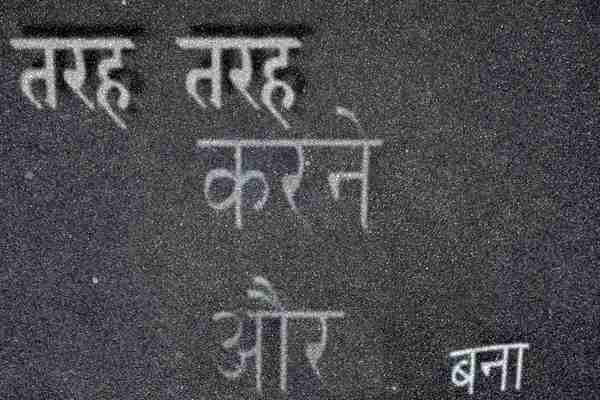 तरह तरह
करने
और
बना